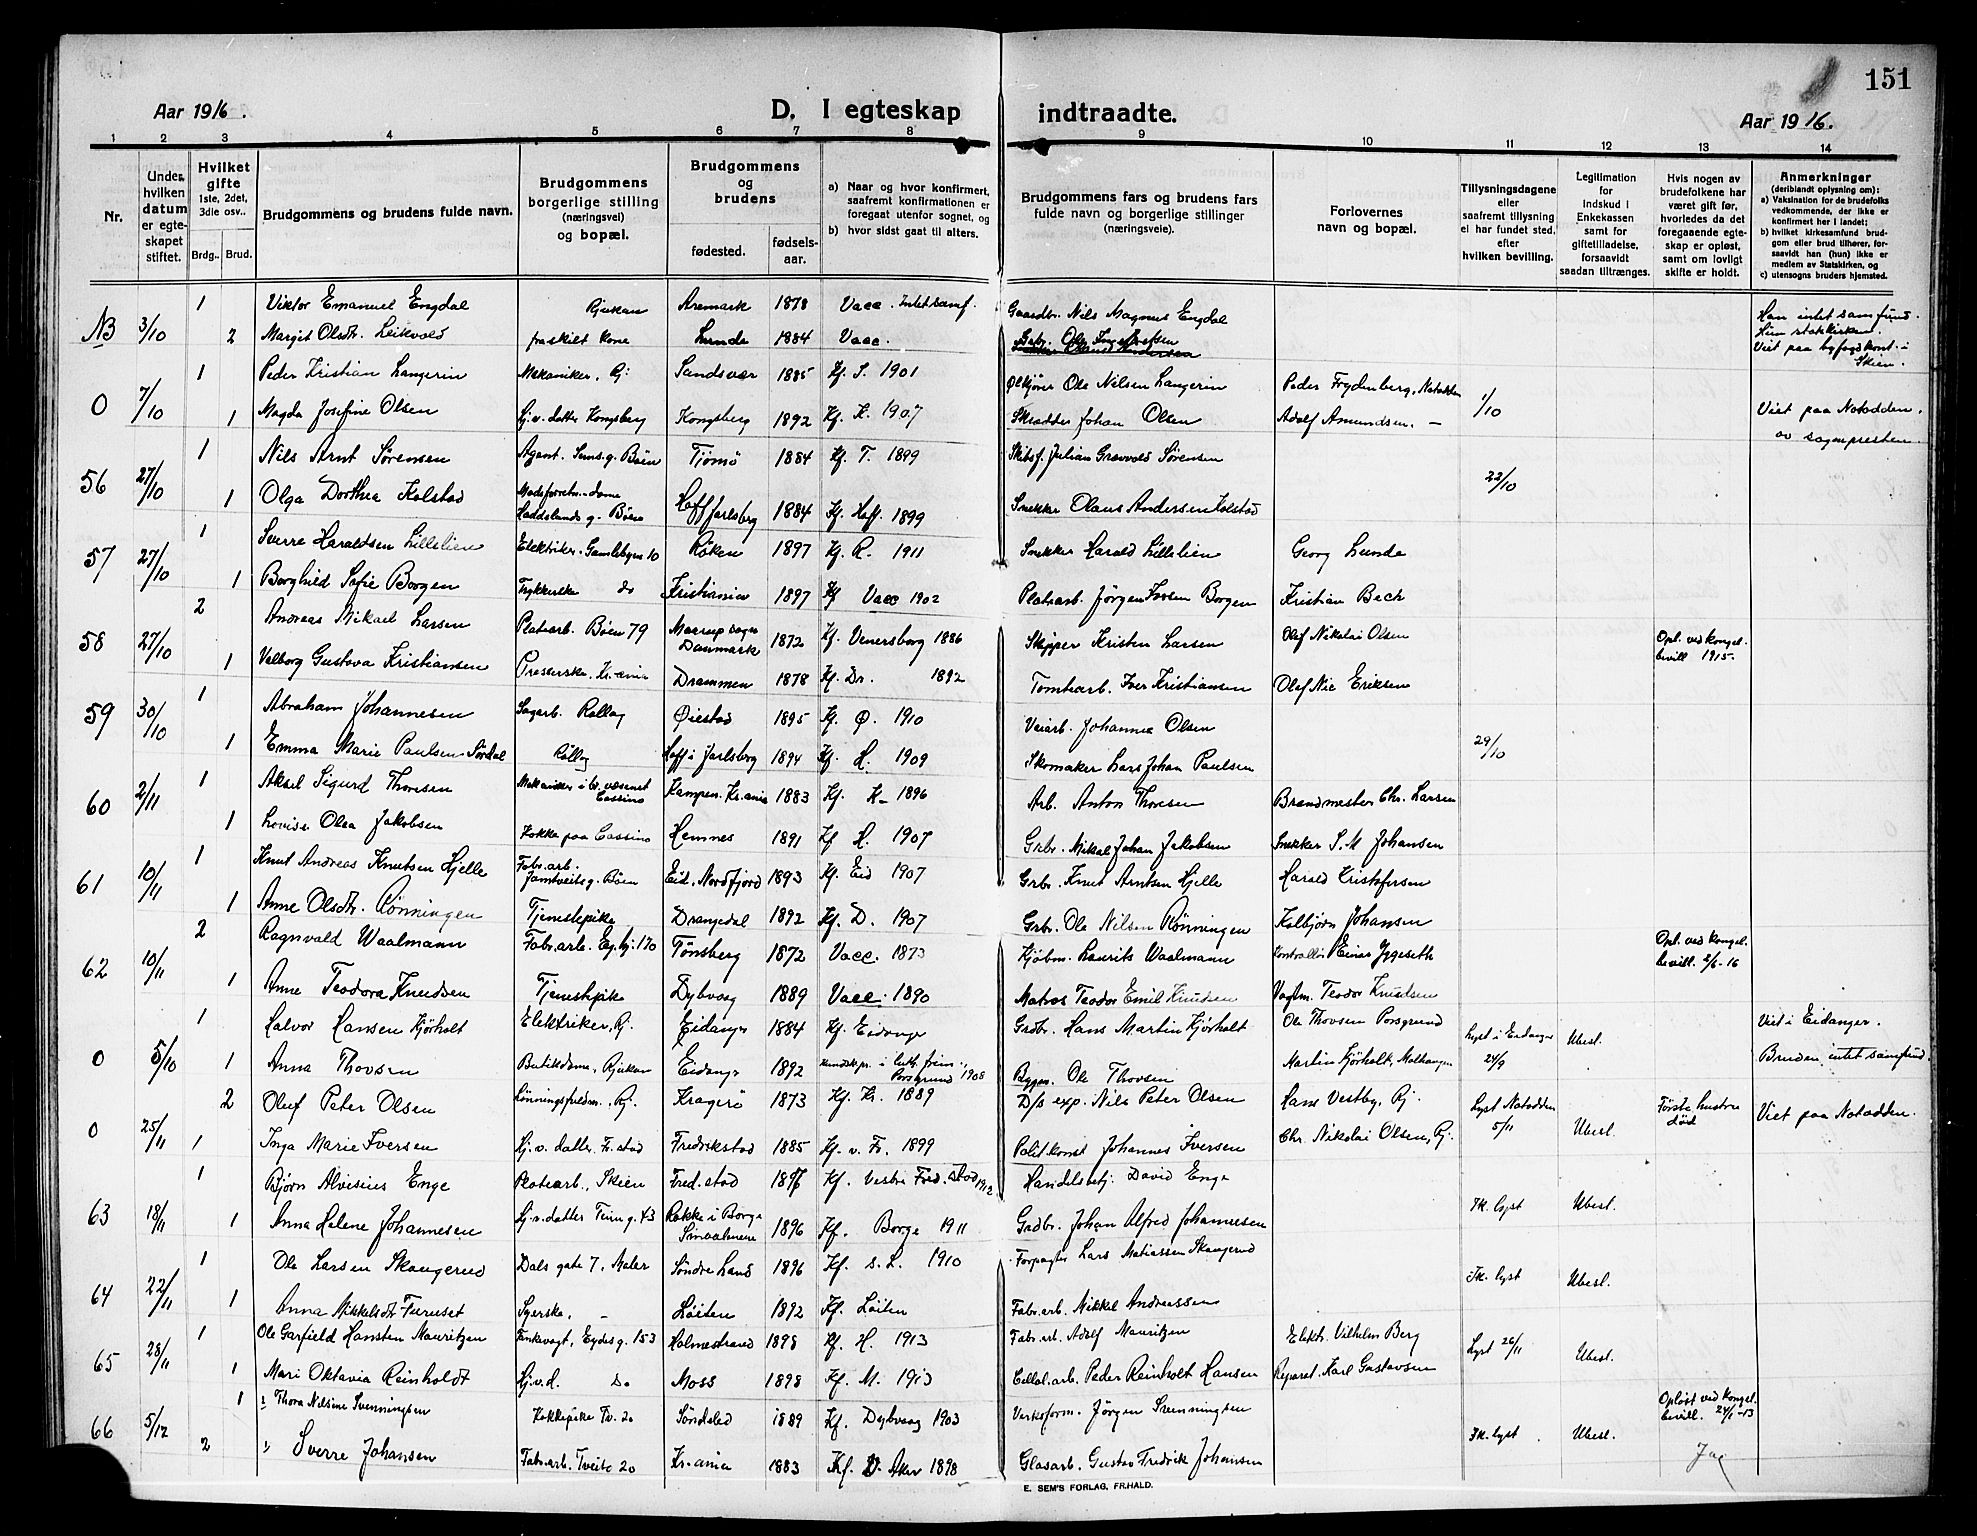 151
Aar 1916.
D. I egteskap indtraadte.
Aar 1916.
1 2 3 4 5 6 7 8 9 10 11 12 13 14
Nr.
Under hvilken datum er egteskapet stiftet.
Hvilket gifte 1ste, 2det, 3die osv..
Brdg.. Brud.
Brudgommens og brudens fulde navn.
Brudgommens borgerlige stilling (næringsvei) og bopæl.
Brudgommens og brudens
fødested. fødsels-aar.
a) Naar og hvor konfirmert, saafremt konfirmationen er foregaat utenfor sognet, og
b) hvor sidst gaat til alters.
Brudgommens fars og brudens fars fulde navn og borgerlige stillinger (næringsveie).
Forlovernes navn og bopæl.
Tillysningsdagene eller saafremt tillysning ei har fundet sted, efter hvilken bevilling.
Legitimation for Indskud i Enkekassen samt for giftetilladelse, forsaavidt saadan tiltrænges.
Hvis nogen av brudefolkene har været gift før, hvorledes da det foregaaende egteskap er opløst, samt om lovligt skifte er holdt.
Anmerkninger (deriblandt oplysning om):
a) Vaksination for de brudefolks vedkommende, der ikke er konfirmert her i landet;
b) hvilket kirkesamfund brudgom eller brud tilhører, forsaavidt han (hun) ikke er medlem av Statskirken, og
c) utensogns bruders hjemsted.
NB 3/10 1 Viktor Emanuel Engdal Rjukan Aremark 1878 Vacc. Intet samf. Gaardbr. Nils Magnus Engdal Han intet samfund.
2 Margit Olsdtr. Leikvold fraskilt kone Lunde 1884 Vacc. Gabr. Ole Ingebretsen Hun statskirken.
Viet paa byfogdkont. i Skien.
0 7/10 1 Peder Kristian Langerin Mekaniker, Rj. Sandsvær 1885 Kf. S. 1901 Ølkjører Ole Nilsen Langerin Peder Frydenberg, Notodden 1/10
1 Magda Josefine Olsen Hj.v. datter Kongsberg Kongsberg 1892 Kf. K. 1907 Skrædder Johan Olsen Adolf Amundsen. — Viet paa Notodden. av sogneprestem
56 27/10 1 Nils Arnt Sørensen Agent. Sems g. Bøen Tjømø 1884 Kf. T. 1899 Skibsf. Julian Grævvold Sørensen 22/10
1 Olga Dorthea Kolstad Madsforretn.-dame Haddelands g. Bøen Hoff Jarlsberg 1884 Kf. Hoff. 1899 Snekker Olaus Andersen Kolstad
57 27/10 1 Sverre Haraldsen Lillelien Elektriker. Gamlebyen 10 Røken 1897 Kf. R. 1911 Snekker Harald Lillelien Georg Lunde
1 Borghild Sofie Borgen Trykkerske do Kristiania 1897 Kf Vacc 1902 Platearb. Jørgen Iversen Borgen Kristian Bech
58 27/10 2 Andreas Mikael Larsen Platearb. Bøen 79 Maarup sogn Danmark 1872 Kf. Venersborg 1886 Skipper Kristen Larsen Olaf Nikolai Olsen Opl. ved kongel. bevill 1915.
1 Valborg Gustava Kristiansen Presserske. Kr.ania Drammen 1878 Kf. Dr. 1892 Tomtearb. Iver Kristiansen Olaf Nic Eriksen
59 30/10 1 Abraham Johannesen Sagarb. Rollag Øiestad 1895 Kf. Ø. 1910 Veiarb. Johannes Olsen 29/10
1 Emma Marie Paulsen Sørdal Rollag Hoff i Jarlsberg 1894 Kf. H. 1909 Skomaker Lars Johan Paulsen
60 2/11 1 Aksel Sigurd Thoresen Mekaniker i br.væsenet Cassino Kampen. Kr.ania 1883 Kf. K— 1896 Arb. Anton Thoresen Brandmester Chr. Larsen
1 Lovise Olea Jakobsen Kokke paa Cassino Hemnes 1891 Kf H. 1907 Grbr. Mikal Johan Jakobsen Snekker S. M Johansen
61 10/11 1 Knut Andreas Knutsen Hjelle Fabr.arb. Jamtveits g. Bøen Eid. Nordfjord 1893 Kf. Eid 1907 Grbr. Knut Arntsen Hjelle Harald Kristofersen
1 Anne Olsdtr. Rønningen Tjenestepike Drangedal 1892 Kf. D. 1907 Grbr. Ole Nilsen Rønningen Kolbjørn Johansen
62 10/11 2 Ragnvald Waalmann Fabr.arb. Tønsberg 1872 Vacc. 1873 Kjøbm. Laurits Waalmann Kontrollør Einar Opl. ved kongel. bevill. 2/6-16
1 Anne Teodora Knudsen Tjenestepike Dybvaag 1889 Vacc. 1890 Matros Teodor Emil Knudsen Vagtm. Teodor Knudsen
0 5/10 1 Halvor Hansen Kjørholt Elektriker, Rj. Eidanger 1884 Kf. Eidanger Grdbr. Hans Martin Kjørholt Ole Thovsen Porsgrund Lyst i Eidanger 24/9 Ubesl. Viet i Eidanger.
1 Anna Thovsen Butikdame, Rjukan Eidanger 1892 Porsgrund 1908 Bygm. Ole Thovsen Martin Kjørholt, Bruden intet samfund.
0 25/11 2 Oluf Peter Olsen Rj. Kragerø 1873 Kf. Kr. 1889 D/s exp. Nils Peter Olsen Hans Vestby, Rj. Lyst Notodden 5/11 Ubesl. Første hustru død Viet paa Notodden.
1 Inga Marie Iversen Hj.v. datter Fr.stad Fredrikstad 1885 Kf. v. Fr. 1899 Politikonst Johannes Iversen Chr. Nikolai Olsen, Rj.
63 18/11 1 Bjørn Alvesius Enge Platearb., Skien Fred.stad 1896 Kf. Vestre Fred.stad 1912 Handelsbetj. David Enge Fk. lyst Ubesl.
1 Anna Helene Johannesen Hj.v.datter Tinn g. 43 Rokke i Borge Smaalenene 1896 Kf. Borge 1911 Grdbr. Johan Alfred Johannesen
64 22/11 1 Ole Larsen Skaugerud Dals gate 7, Maler Søndre Land 1896 Kf. S. L. 1910 Forpagter Lars Matiassen Skaugerud Fk. lyst Ubesl.
1 Anna Mikkelsdtr Furuset Syerske, — Løiten 1892 Kf. Løiten Fabr.arb. Nikkel Andreassen
65 28/11 1 Ole Garfield Hansten Mauritzen Tankvagt, Eydes g. 153 Holmestrand 1898 Kf. H. 1913 Fabr.arb. Adolf Mauritzen Elektr. Vilhelm Berg Lyst 26/11 Ubesl.
1 Mari Oktavia Reinholdt Hj.v.d. Do Moss 1898 Kf. M. 1913 Cellol.arb. Peder Reinholt Hansen Reparat. Karl Gustavsen
66 5/12 1 2 Thora Nilsine Svenningsen Kokkepike Tv. 20 Søndeled 1889 Kf. Dybvaag 1903 Verksform. Jørgen Svenningsen Fk. lyst Ubesl. Opløst ved kongel. bevill. 24/1-13
2 1 Sverre Johansen Fabr.arb. Tveito 20 Kr.ania 1883 Kf. Ø. Aker 1898 Glasarb. Gustav Fredrik Johansen Ja
E. SEM'S FORLAG, FR.HALD.